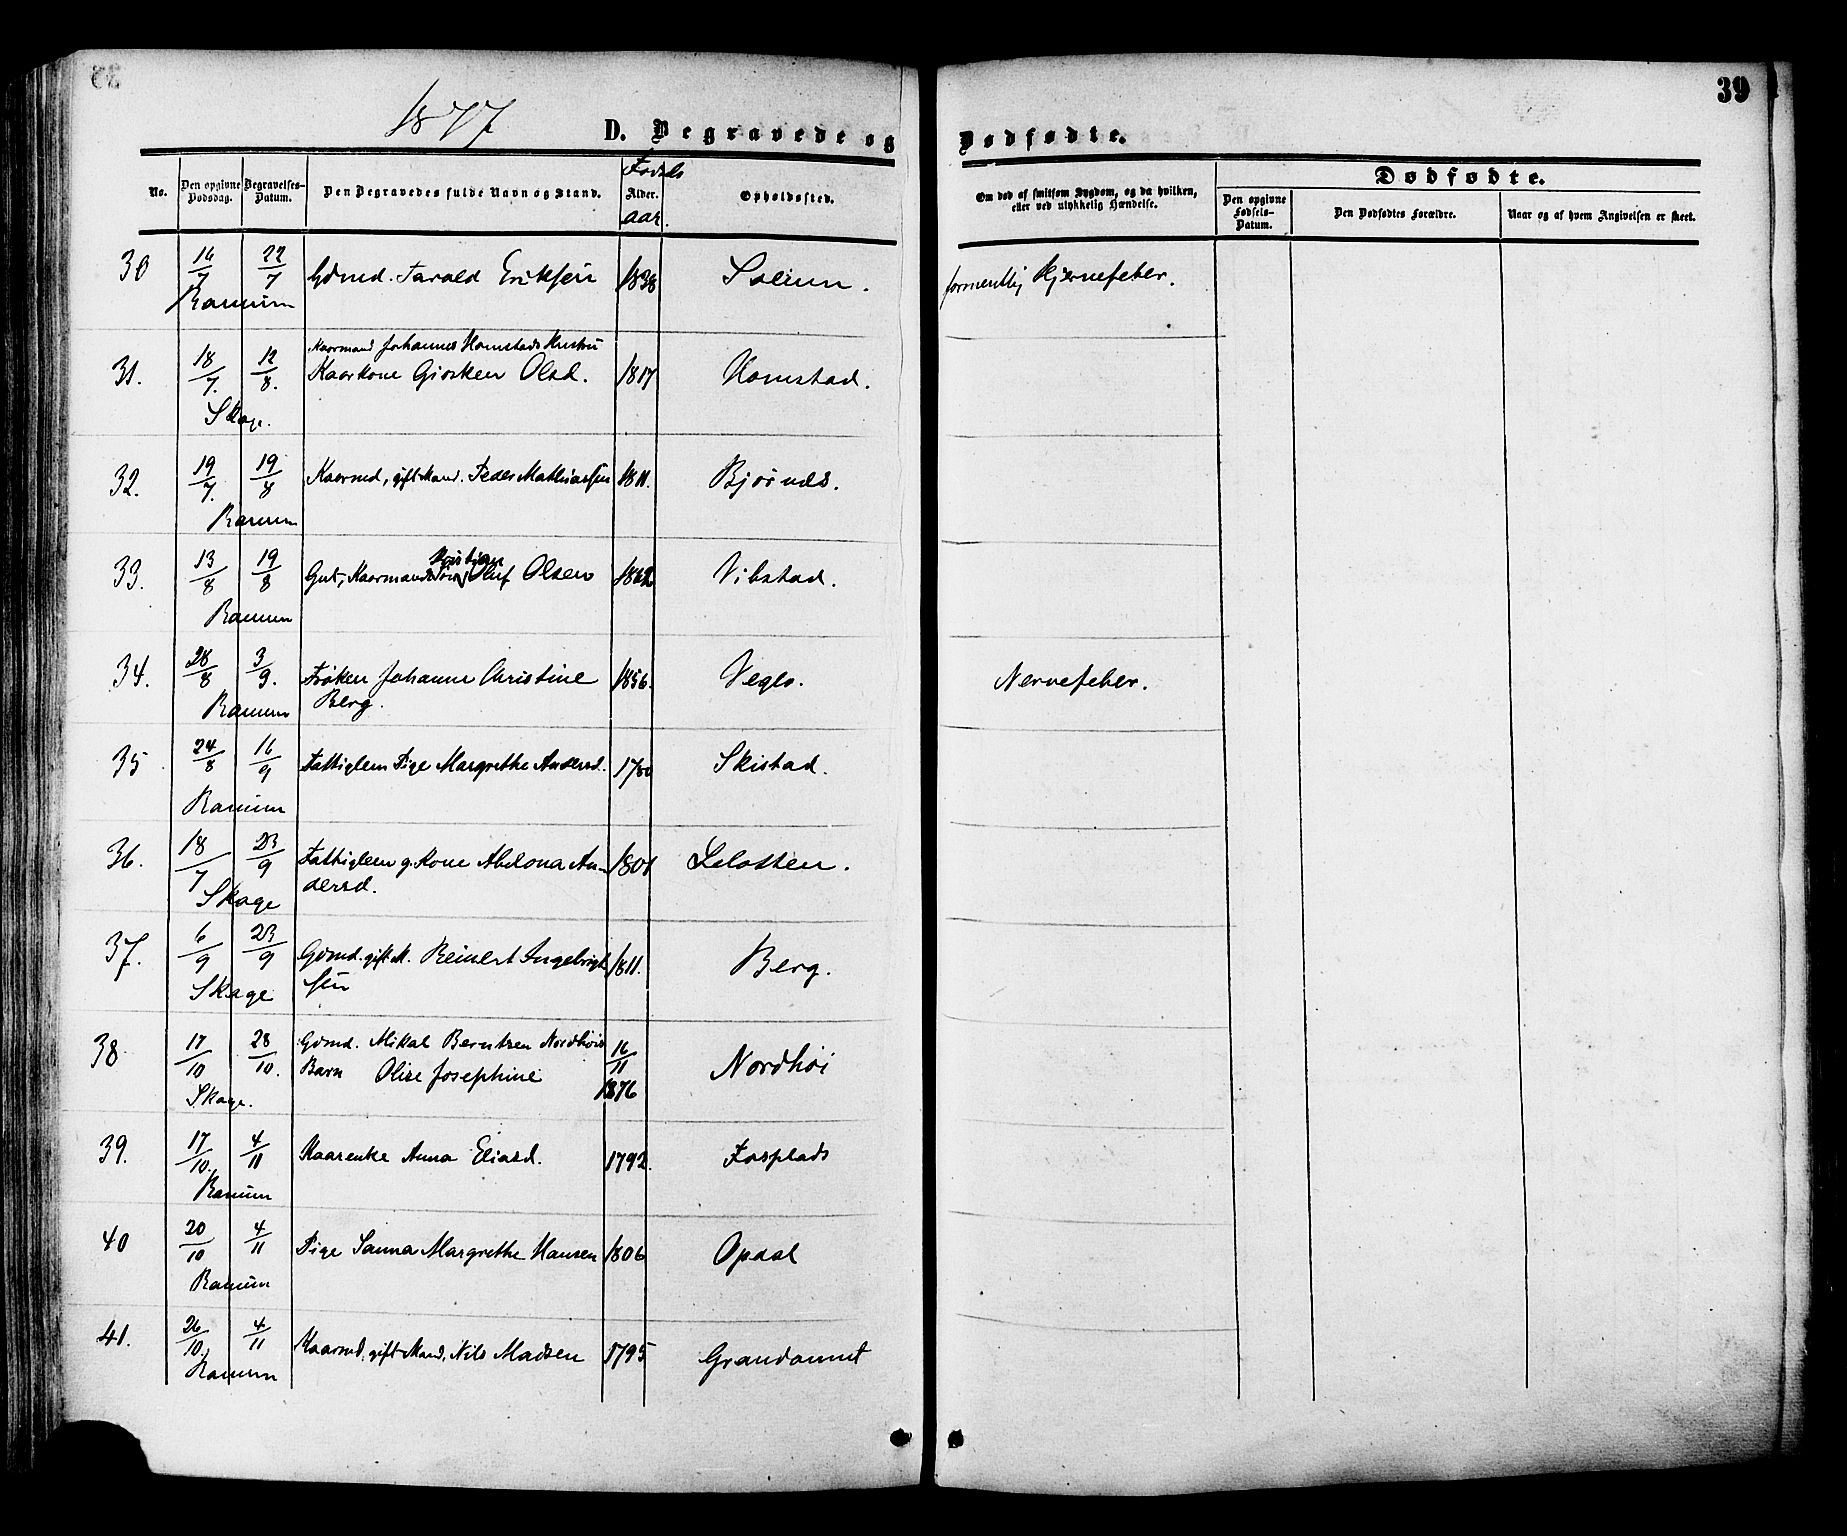 39
1877
D. Begravede og Dødfødte.
No.
Den opgivne Dødsdag.
Begravelses-Datum.
Den Begravedes fulde Navn og Stand.
Føvds
Alder.
aar
Opholdssted.
Om død af smitsom Sygdom, og da hvilken, eller ved ulykkelig Hændelse.
Dødfødte.
Den opgivne Fødsels-Datum.
Den Dødfødtes Forældre.
Naar og af hvem Angivelsen er skeet.
30 16/7 22/7 Gdmd. Tarald Eriksen 1838 Solum. formentlig Hjernefeber.
Ranum
Kaarmand Johannes Homstads Hustru
31. 18/7. 12/8. Kaarkone Gjorken Olsd. 1817 Homstad.
Skage.
32. 19/7. 19/8 Kaarmd, gift Mand. Peder Mathiassen 1811. Bjørnes.
Ranum
Kristian
33. 13/8 19/8 Gut, Kaarmands Søn, Oluf Olsen 1862 Vibstad.
Ranum
34. 28/8 3/9. Frøken Johanne Christine 1856. Veglo. Nervefeber.
Berg.
Ranum
35 24/8 16/9 Fattiglem Pige Margrethe Andersd. 1780 Skistad.
Ranum
36. 18/7 23/9 Fattiglem g. Kone Abelona An- 1801
dersd.
Skage
37. 6/9 23/9 Gdmd. gift M. Reinert Ingebrigt 1811. Berg.
sen
Skage
38 17/10 28/10. Gdmd. Mikal Berntsen Nordhøis 16/11
Barn Olise Josephine 1876 Nordhøi
Skage.
39. 17/10. 4/11 Kaarenke Anna Eliasd. 1792. Fosplads
Ranum
40 20/10 4/11 Pige Sanna Margrethe Hansen 1806 Opdal
Ranum
41. 26/10. 4/11 Kaarmd. gift Mand, Nils Madsen 1795 Grandaunet
Ranum